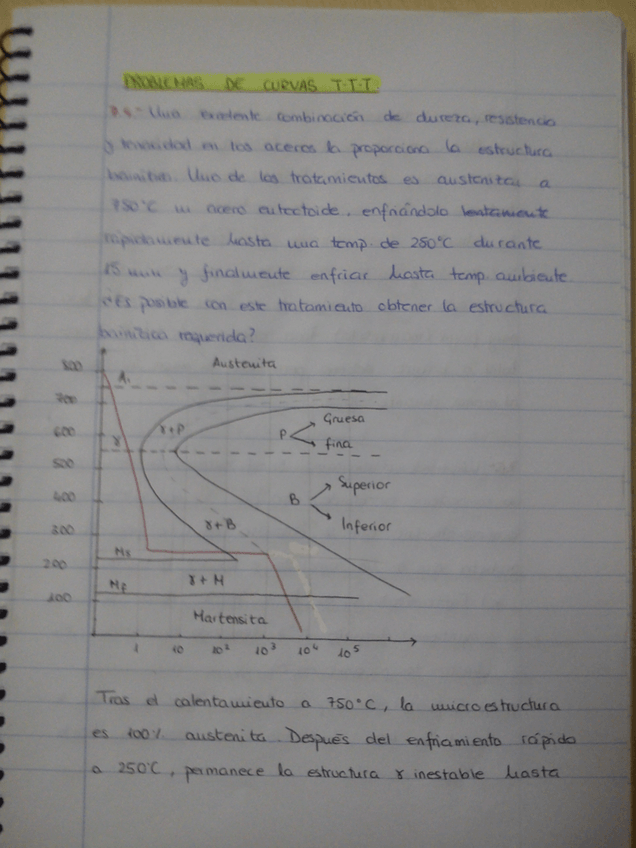 PROBLEMAS DE CURVAS T.T.T.
Una excelente combinación de dureza, resistencia
y tenacidad en los aceros la proporciona la estructura
bainítica. Uno de los tratamientos es austenizar a
750°C un acero eutectoide, enfriándolo lentamente
rápidamente hasta una temp. de 250°C durante
15 min y finalmente enfriar hasta temp. ambiente.
¿Es posible con este tratamiento obtener la estructura
bainítica requerida?
800
Austenita
A₁
700
γ+P
P
Gruesa
fina
600
γ
500
400
B
Superior
Inferior
γ+B
300
Ms
200
Mf
γ+M
100
Martensita
1 10 10² 10³ 10⁴ 10⁵
Tras el calentamiento a 750°C, la microestructura
es 100% austenita. Después del enfriamiento rápido
a 250°C, permanece la estructura γ inestable hasta